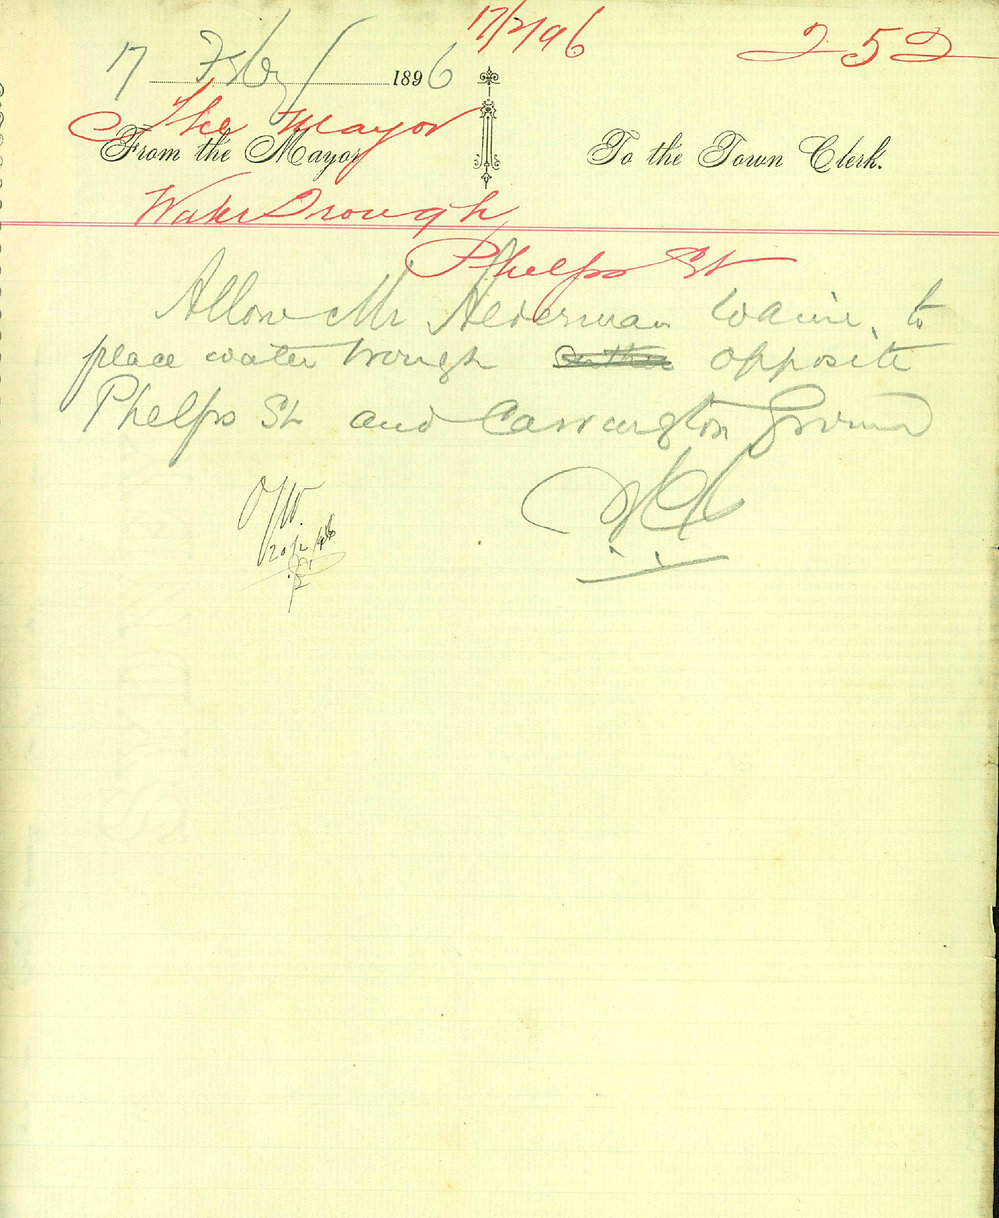 17/2/96
252
17 Feby 1896
The Mayor
From the Mayor
To the Town Clerk.
Water Trough
Phelps St
Allow Mr Alderman Waine, to
place water trough opposite
Phelps St and Carrington Ground
20/2/96
SYDNEY